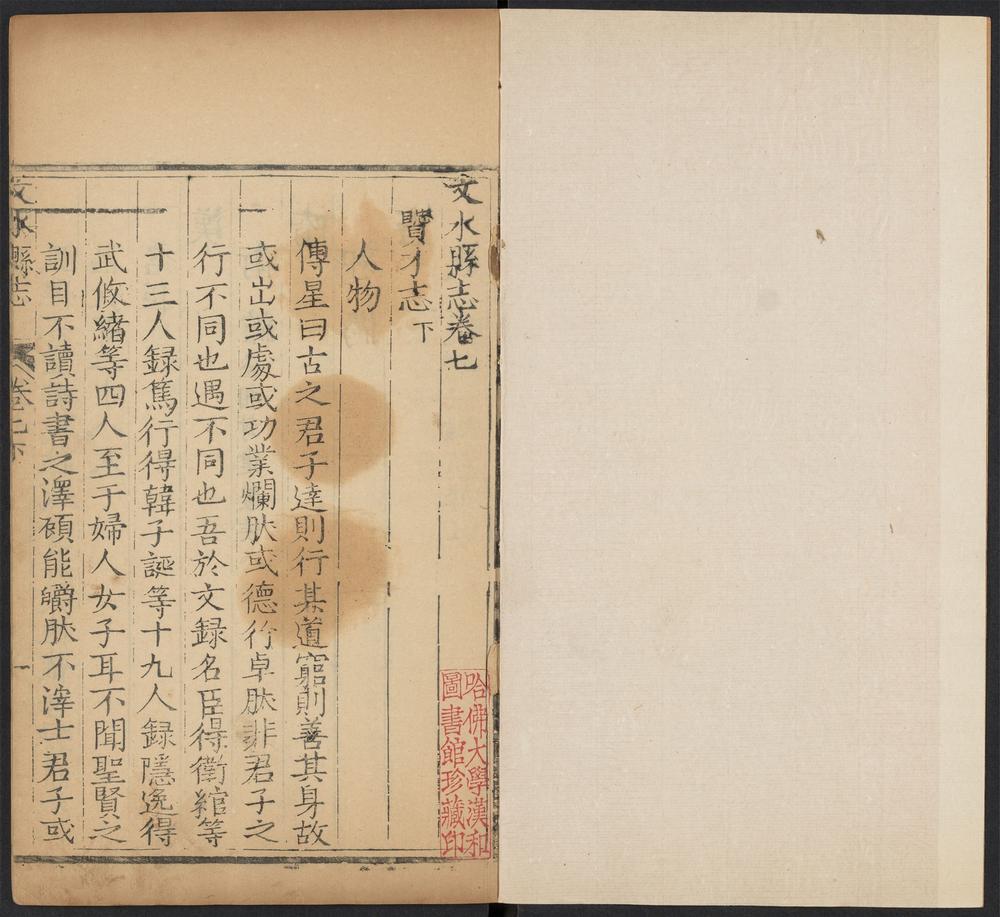 文水縣志卷七
賢才志下
人物
傳星曰古之君子達則行其道窮則善其身故
或出或處或功業爛肰或德行卓肰非君子之
行不同也遇不同也吾於文録名臣得衛綰等
十三人録篤行得韓子誕等十九人録隱逸得
武攸緒等四人至于婦人女子耳不聞聖賢之
訓目不讀詩書之澤碩能皭肰不滓士君子或
文水縣志
卷七下
一
哈佛大學漢和
圖書館珍藏印